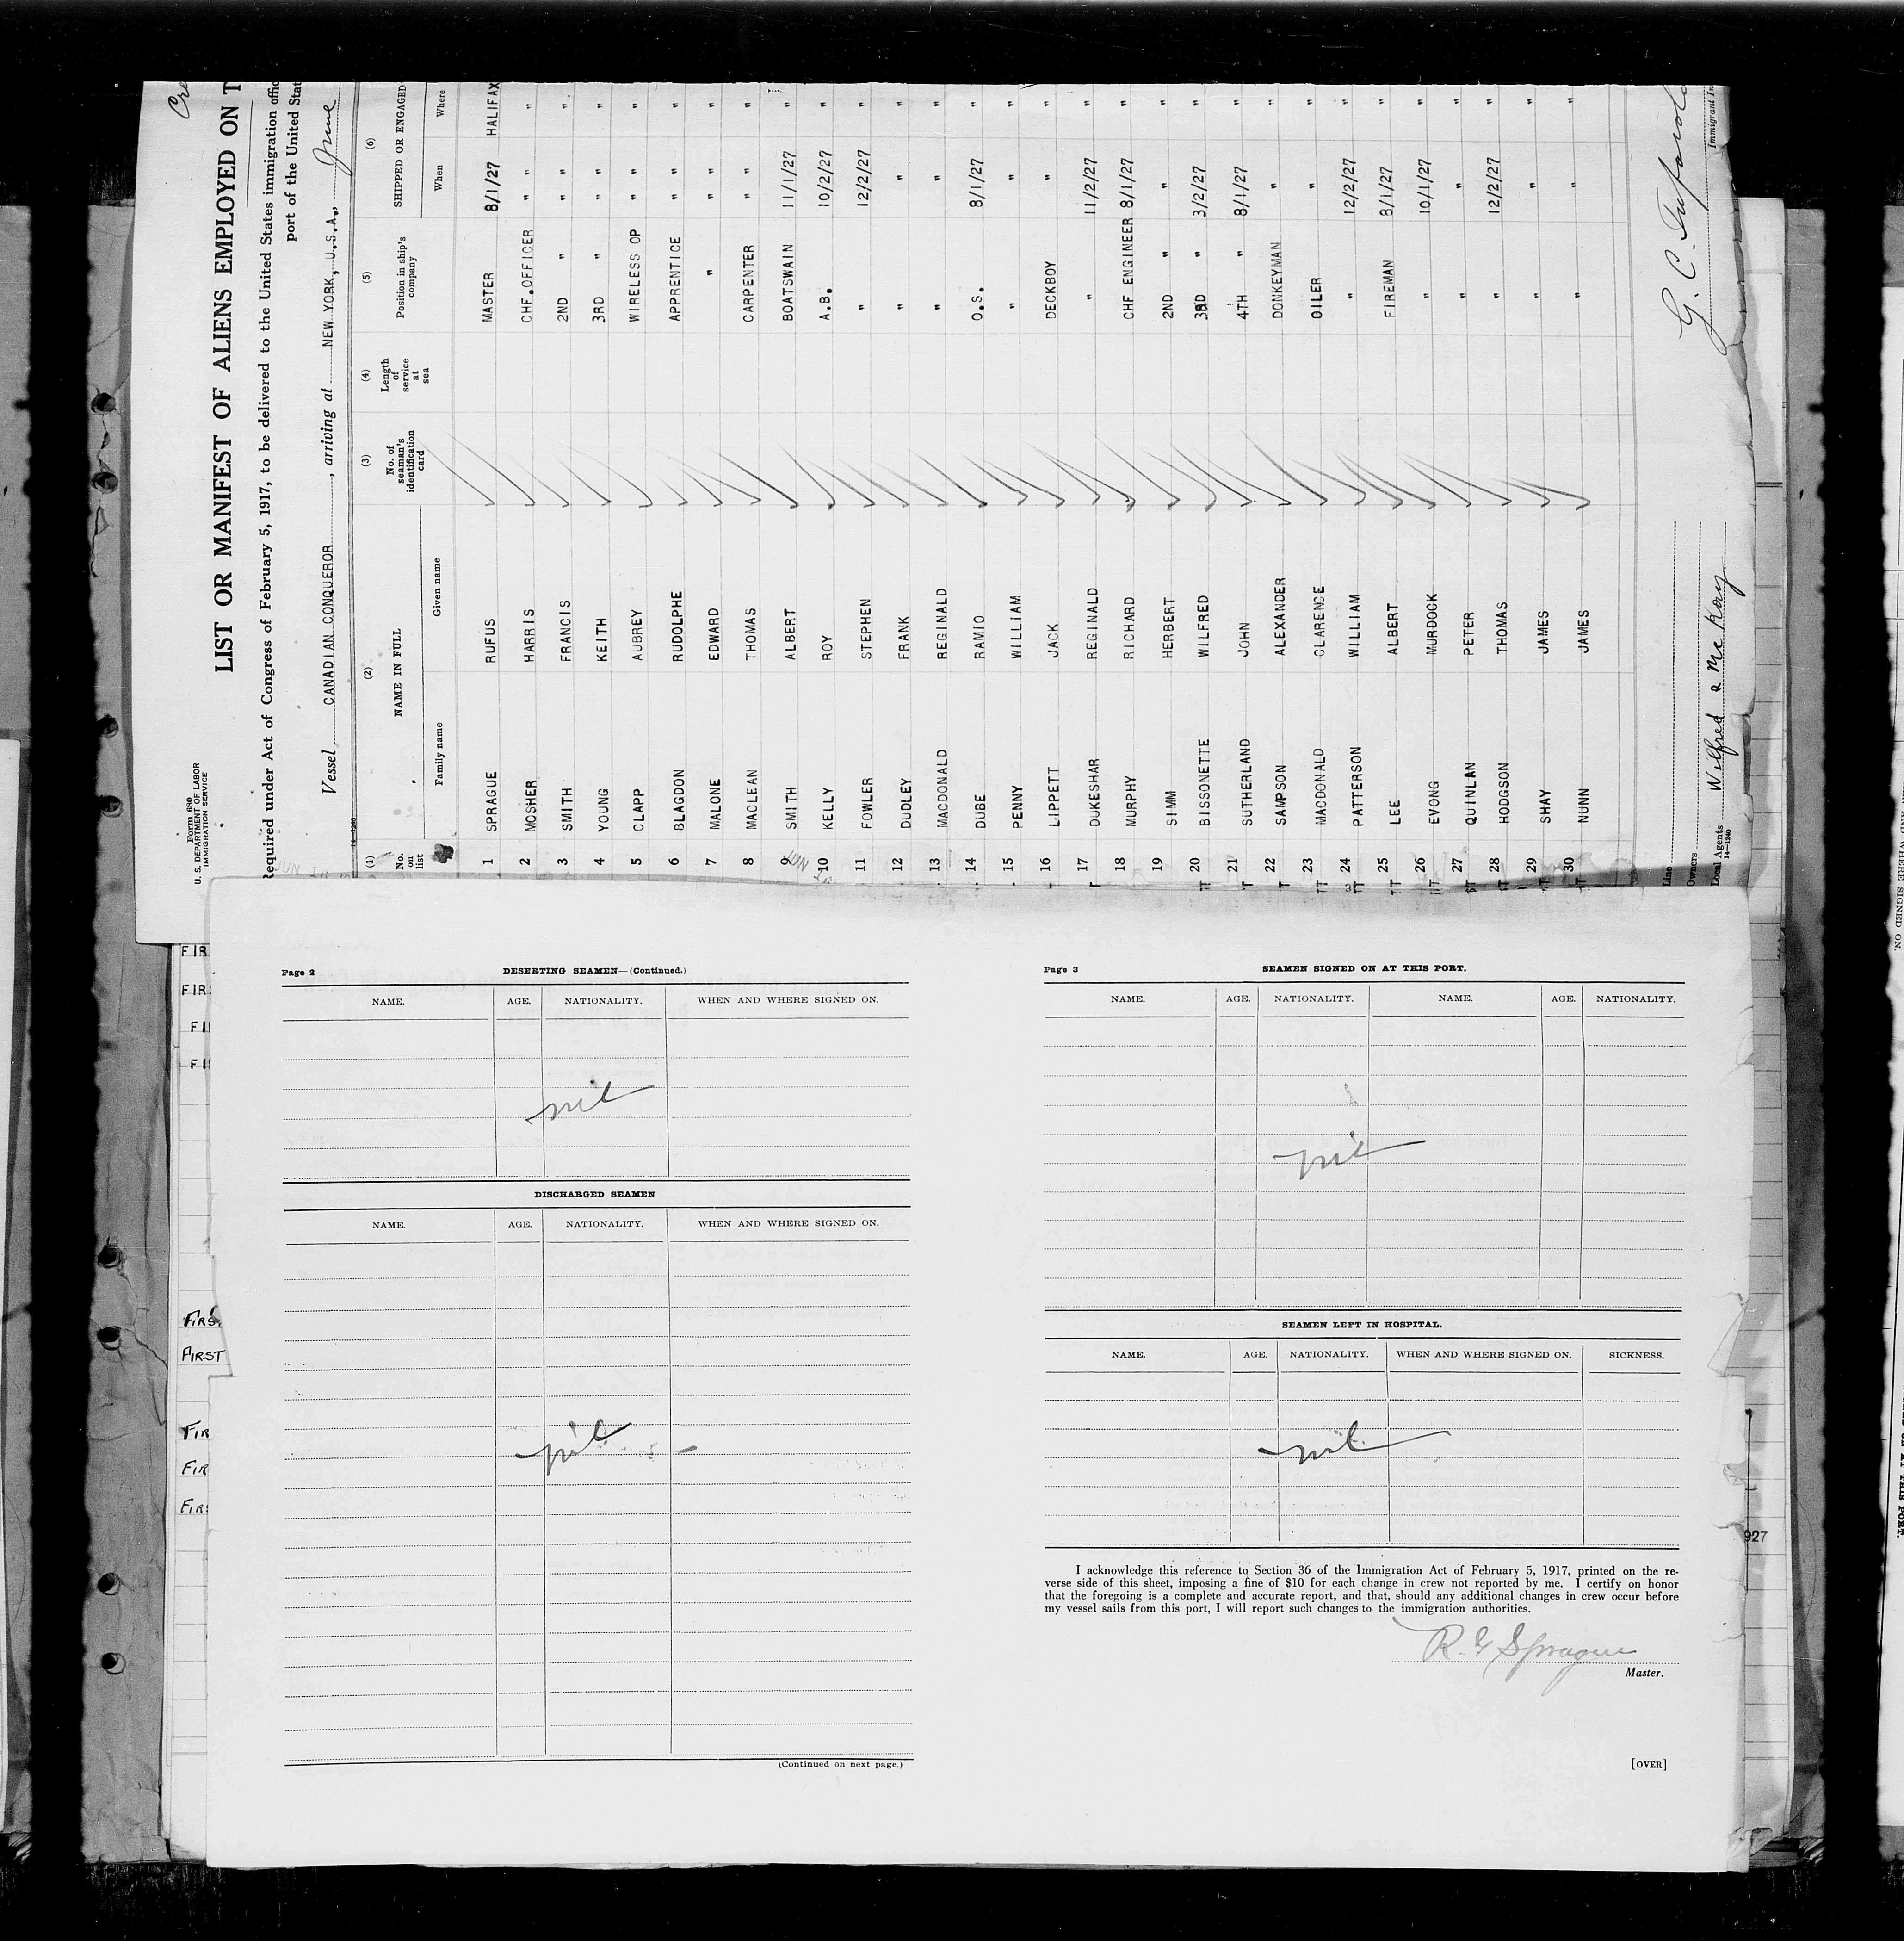 Form 680
U. S. DEPARTMENT OF LABOR
IMMIGRATION SERVICE
LIST OR MANIFEST OF ALIENS EMPLOYED ON T
Required under Act of Congress of February 5, 1917, to be delivered to the United States immigration offic
port of the United Stat
Vessel CANADIAN CONQUEROR, arriving at NEW YORK, U.S.A., June
(1) (2) (3) (4) (5) (6)
No. on list NAME IN FULL No. of seaman's identification card Length of service at sea Position in ship's company SHIPPED OR ENGAGED
Family name Given name When Where
1 SPRAGUE RUFUS MASTER 8/1/27 HALIFAX
2 MOSHER HARRIS CHF.OFFICER " " "
3 SMITH FRANCIS 2ND " " " "
4 YOUNG KEITH 3RD " " " "
5 CLAPP AUBREY WIRELESS OP " " "
6 BLAGDON RUDOLPHE APPRENTICE " " "
7 MALONE EDWARD " " " "
8 MACLEAN THOMAS CARPENTER " " "
9 SMITH ALBERT BOATSWAIN 11/1/27 "
10 KELLY ROY A.B. 10/2/27 "
11 FOWLER STEPHEN " 12/2/27 "
12 DUDLEY FRANK " " "
13 MACDONALD REGINALD "  "
14 DUBE RAMIO O.S. 8/1/27 "
15 PENNY WILLIAM " " "
16 LIPPETT JACK DECKBOY " "
17 DUKESHAR REGINALD " 11/2/27 "
18 MURPHY RICHARD CHF ENGINEER 8/1/27 "
19 SIMM HERBERT 2ND " " "
20 BISSONETTE WILFRED 3RD " 3/2/27 "
21 SUTHERLAND JOHN 4TH " 8/1/27 "
22 SAMPSON ALEXANDER DONKEYMAN " "
23 MACDONALD CLARENCE OILER " "
24 PATTERSON WILLIAM " 12/2/27 "
25 LEE ALBERT FIREMAN 8/1/27 "
26 EVONG MURDOCK " 10/1/27 "
27 QUINLAN PETER " " "
28 HODGSON THOMAS " 12/2/27 "
29 SHAY JAMES " " "
30 NUNN JAMES " " "
Line
Owners
Local Agents Wilfred a McKay
14—1240
Immigrant In
FIR
FIR
FI
FI
FIRS
FIRST
FIR
FIR
FIRS
927
Page 2 DESERTING SEAMEN—(Continued.)
NAME. AGE. NATIONALITY. WHEN AND WHERE SIGNED ON.
nil
DISCHARGED SEAMEN
NAME. AGE. NATIONALITY. WHEN AND WHERE SIGNED ON.
nil
(Continued on next page.)
Page 3 SEAMEN SIGNED ON AT THIS PORT.
NAME. AGE. NATIONALITY. NAME. AGE. NATIONALITY.
nil
SEAMEN LEFT IN HOSPITAL.
NAME. AGE. NATIONALITY. WHEN AND WHERE SIGNED ON. SICKNESS.
nil
I acknowledge this reference to Section 36 of the Immigration Act of February 5, 1917, printed on the re-
verse side of this sheet, imposing a fine of $10 for each change in crew not reported by me. I certify on honor
that the foregoing is a complete and accurate report, and that, should any additional changes in crew occur before
my vessel sails from this port, I will report such changes to the immigration authorities.
Sprague
Master.
[OVER]